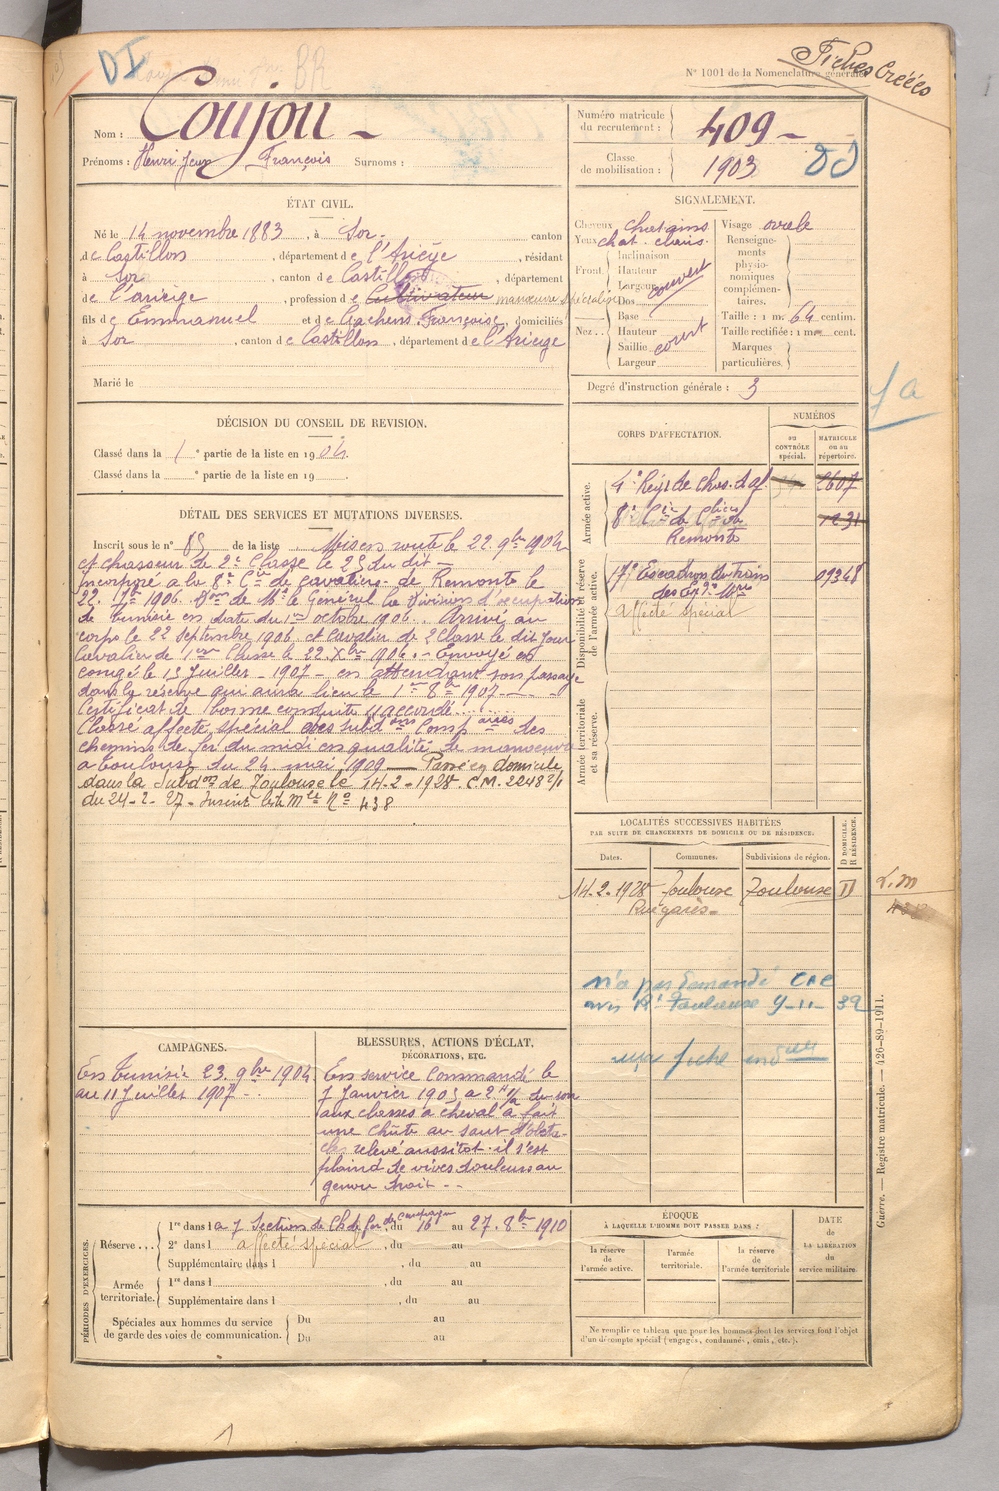 DI
BR
Fiches Créées
N° 1001 de la Nomenclature générale
Nom : Coujou -
Prénoms : Henri Jean François Surnoms :
Numéro matricule du recrutement : 409 -
Classe de mobilisation : 1903
ÉTAT CIVIL.
Né le 14 novembre 1883, à Sor. canton
de Castillon, département de l'Ariège, résidant
à Sor, canton de Castillon, département
de l'ariège, profession de Cultivateur manœuvre spécialisé
fils de Emmanuel et de Cachens Françoise, domiciliés
à Sor, canton de Castillon, département de l'Ariège
Marié le
SIGNALEMENT.
Cheveux chatains Visage ovale
Yeux chat. clairs. Renseignements physionomiques complémentaires.
Front. Inclinaison
Hauteur
Largeur couvert
Nez... Dos
Base
Hauteur
Saillie court
Largeur
Taille : 1 m. 64 centim.
Taille rectifiée : 1 m. cent.
Marques particulières.
Degré d'instruction générale : 3
1a
DÉCISION DU CONSEIL DE REVISION.
Classé dans la 1e partie de la liste en 1904.
Classé dans la e partie de la liste en 19
DÉTAIL DES SERVICES ET MUTATIONS DIVERSES.
Inscrit sous le n° 89 de la liste Mis en route le 22. 9bre 1904
et chasseur de 2e Classe le 23 du dit -
incorporé a la 8e Cie de Cavaliers de Remonte le
22. 7bre 1906. Don de Mr le Général la Division d'occupation
de Tunisie en date du 1er octobre 1906. Arrivé au
corps le 22 Septembre 1906 et Cavalier de 2 Classe le dit jour
Cavalier de 1ère Classe le 22 Xbre 1906. - Envoyé en
congé le 13 Juillet - 1907 - en attendant son passage
dans la réserve qui aura lieu le 1er 8bre 1907
Certificat de bonne conduite "accordé"
Classé affecté spécial des subdons Compagnies des
chemins de fer du midi en qualité de manœuvre
à Toulouse du 24 mai 1909 — Passé en domicile
dans la Subdon de Toulouse le 14-2-1928 C.M. 2248 2/1
du 24-2-27. Inscrit liste Mle No 438
CORPS D'AFFECTATION.
NUMÉROS
au CONTRÔLE spécial.
MATRICULE ou au répertoire.
Armée active.
4e Régt de Chas. d'Af. 2607
8e Cie de Cliers de Remonte 1231
Disponibilité et réserve de l'armée active.
17e Escadron du train des Eq. Mres 09348
affecté spécial
Armée territoriale et sa réserve.
LOCALITÉS SUCCESSIVES HABITÉES
PAR SUITE DE CHANGEMENTS DE DOMICILE OU DE RÉSIDENCE.
Dates.
Communes.
Subdivisions de région.
D DOMICILE. R RÉSIDENCE.
14-2-1928 Toulouse Toulouse D
L.M
438
n'a pas demandé CAC
avis Rt Toulouse 9-11-39
CAMPAGNES.
En Tunisie 23. 9bre 1904
au 11 Juillet 1907 - .
BLESSURES, ACTIONS D'ÉCLAT,
DÉCORATIONS, ETC.
En service Commandé le
7 Janvier 1905 a 2H 1/2 du soir
aux classes à cheval a fait
une chûte au saut d'obsta-
cles relevé aussitot. il s'est
plaind de vives douleurs au
genou droit - -
PÉRIODES D'EXERCICES.
Réserve...
1re dans la 7 Section de Ch de fer de campagne du 16 au 27. 8bre 1910
2e dans l affecté spécial, du au
Supplémentaire dans l, du au
Armée territoriale.
1re dans l, du au
Supplémentaire dans l, du au
Spéciales aux hommes du service
de garde des voies de communication.
Du au
Du au
ÉPOQUE
À LAQUELLE L'HOMME DOIT PASSER DANS :
la réserve de l'armée active.
l'armée territoriale.
la réserve de l'armée territoriale
DATE
de
LA LIBÉRATION
du
service militaire.
Ne remplir ce tableau que pour les hommes dont les services font l'objet
d'un décompte spécial (engagés, condamnés, omis, etc.).
Guerre. — Registre matricule. — 426-89-1911.